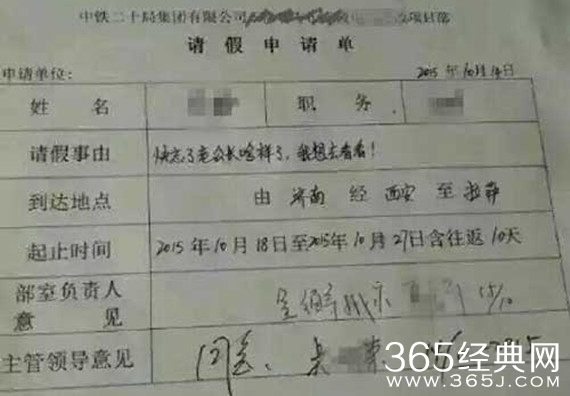 中铁二十局集团有限公司 项目部
请假申请单
申请单位: 2015年10月14日
姓名 职务
请假事由 快忘了老公长啥样了,我想去看看!
到达地点 由 济南 经 西安 至 拉萨
起止时间 2015年10月18日至2015年10月27日含往返10天
部室负责人 呈领导批示 15/10
意见
主管领导意见 同意、
365经典网
www.365J.com